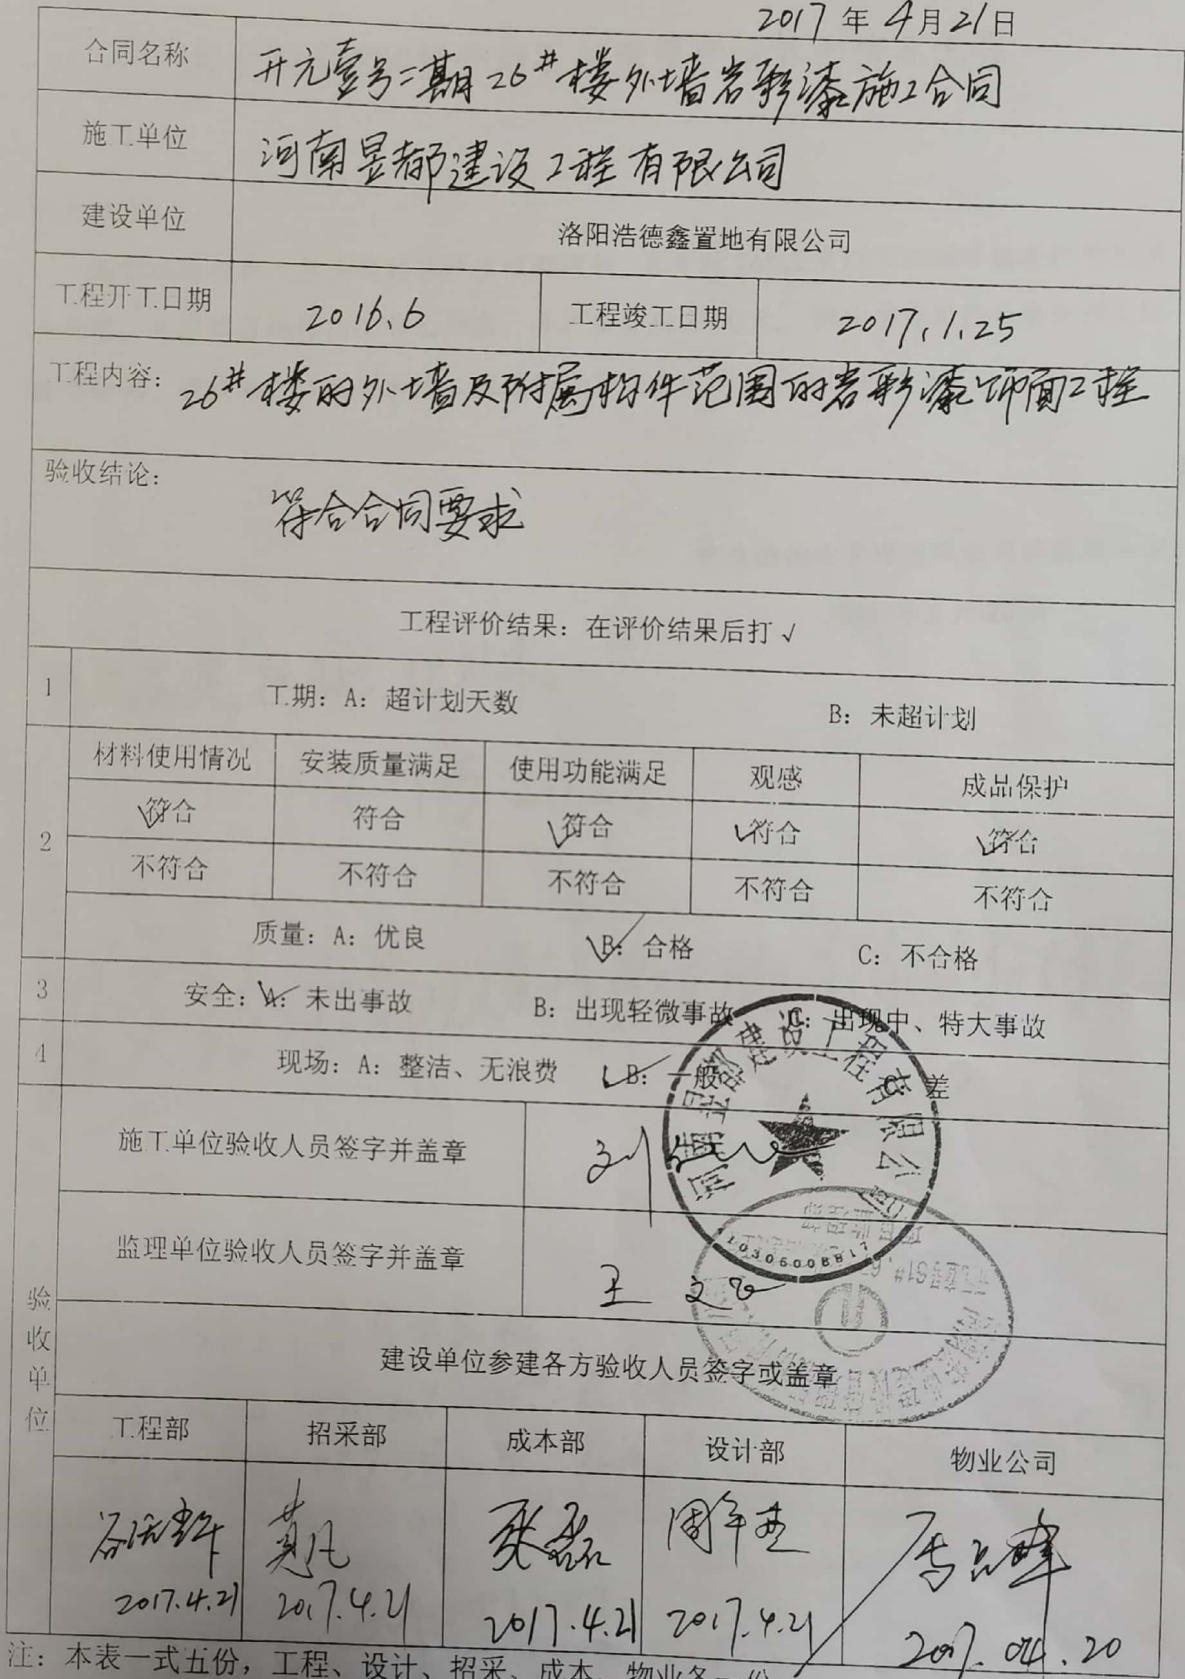 2017年4月21日
合同名称 开元壹号二期26#楼外墙岩彩漆施工合同
施工单位 河南昱都建设工程有限公司
建设单位 洛阳浩德鑫置地有限公司
工程开工日期 2016.6 工程竣工日期 2017.1.25
工程内容: 26#楼的外墙及附属构件范围的岩彩漆饰面工程
验收结论:
符合合同要求
工程评价结果: 在评价结果后打√
1 工期: A: 超计划天数 B: 未超计划
材料使用情况 安装质量满足 使用功能满足 观感 成品保护
√符合 符合 √符合 √符合 √符合
2
不符合 不符合 不符合 不符合 不符合
质量: A: 优良 √B: 合格 C: 不合格
3 安全: √A: 未出事故 B: 出现轻微事故 C: 出现中、特大事故
4 现场: A: 整洁、无浪费 √B: 一般 C 差
验收单位
施工单位验收人员签字并盖章 刘
河南昱都建设工程有限公司
监理单位验收人员签字并盖章 王文
项目监理部
建设单位参建各方验收人员签字或盖章
工程部 招采部 成本部 设计部 物业公司
黄凡 张磊
2017.4.21 2017.4.21 2017.4.21 2017.4.21 2017.04.20
注: 本表一式五份, 工程、设计、招采、成本、物业各一份